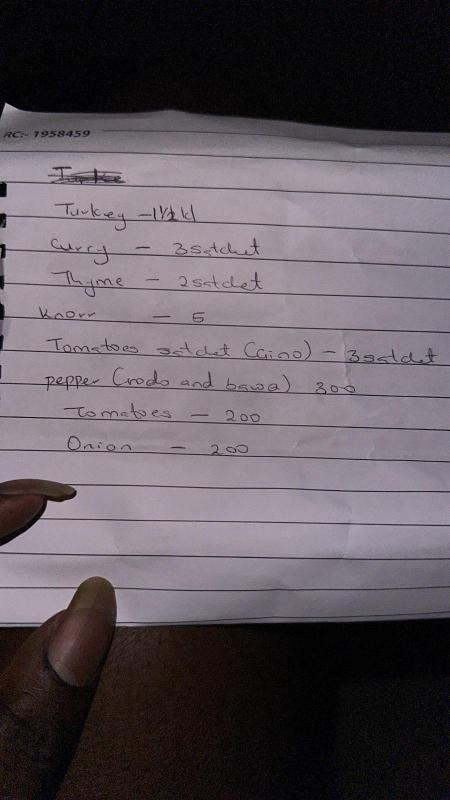 RC:- 1958459
Turkey - 1½ kl
Curry - 3 satchet
Thyme - 2 satchet
Knorr - 5
Tomatoes satchet (Gino) - 3 satchet
pepper (rodo and bawa) 300
Tomatoes - 200
Onion - 200